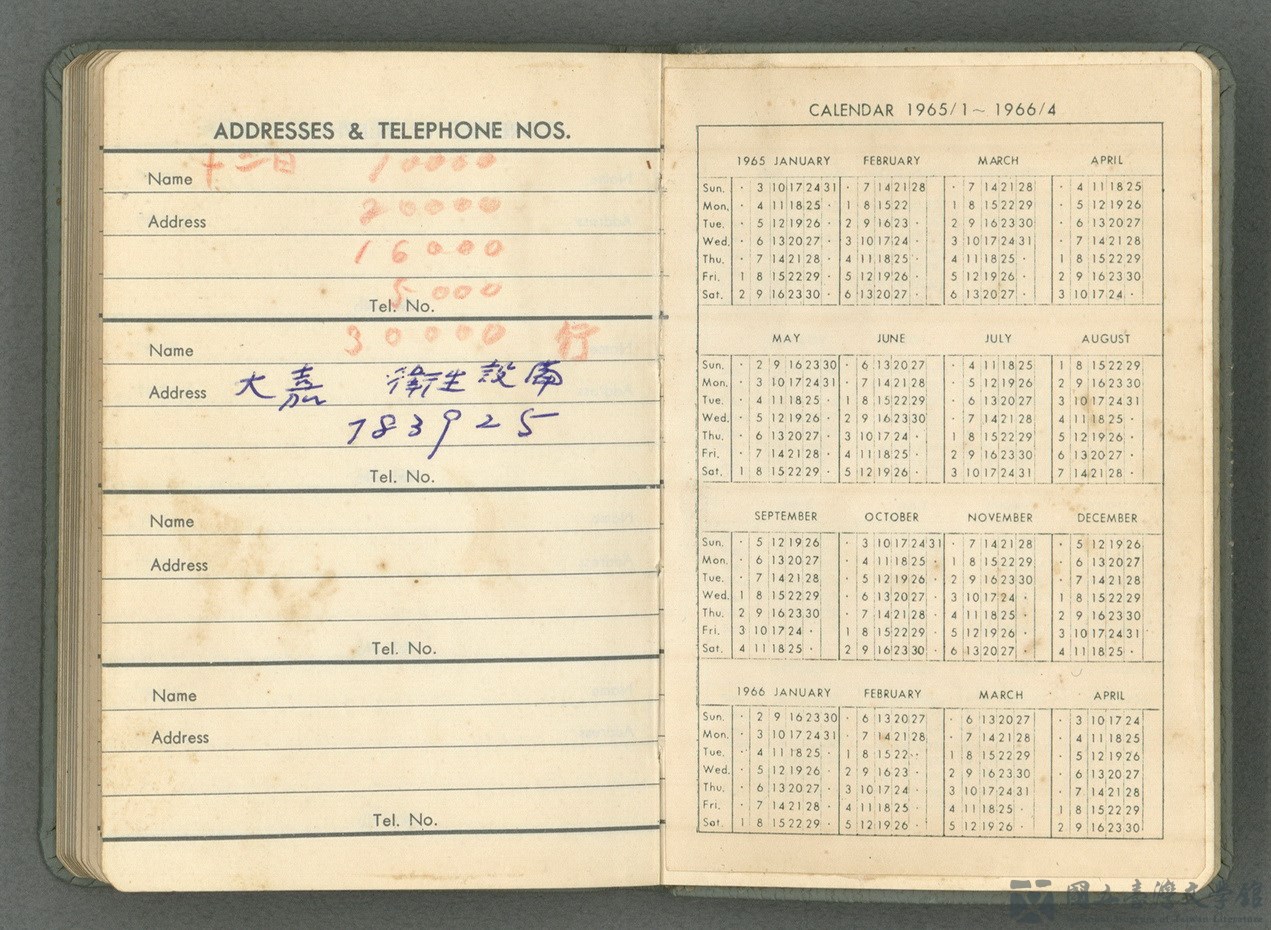 ADDRESSES & TELEPHONE NOS.
十二日 10000
Name
20000
Address
16000
5000
Tel. No.
30000 行
Name
Address 大嘉 衛生設備
783925
Tel. No.
Name
Address
Tel. No.
Name
Address
Tel. No.
CALENDAR 1965/1~1966/4
1965 JANUARY FEBRUARY MARCH APRIL
Sun. · 3 10 17 24 31 · 7 14 21 28 · 7 14 21 28 · 4 11 18 25
Mon. · 4 11 18 25 · 1 8 15 22 1 8 15 22 29 · 5 12 19 26
Tue. · 5 12 19 26 · 2 9 16 23 · 2 9 16 23 30 · 6 13 20 27
Wed. · 6 13 20 27 · 3 10 17 24 · 3 10 17 24 31 · 7 14 21 28
Thu. · 7 14 21 28 · 4 11 18 25 · 4 11 18 25 · 1 8 15 22 29
Fri. 1 8 15 22 29 · 5 12 19 26 · 5 12 19 26 · 2 9 16 23 30
Sat. 2 9 16 23 30 · 6 13 20 27 · 6 13 20 27 · 3 10 17 24 ·
MAY JUNE JULY AUGUST
Sun. · 2 9 16 23 30 · 6 13 20 27 · 4 11 18 25 1 8 15 22 29
Mon. · 3 10 17 24 31 · 7 14 21 28 · 5 12 19 26 2 9 16 23 30
Tue. · 4 11 18 25 · 1 8 15 22 29 · 6 13 20 27 3 10 17 24 31
Wed. · 5 12 19 26 · 2 9 16 23 30 · 7 14 21 28 4 11 18 25 ·
Thu. · 6 13 20 27 · 3 10 17 24 · 1 8 15 22 29 5 12 19 26 ·
Fri. · 7 14 21 28 · 4 11 18 25 · 2 9 16 23 30 6 13 20 27 ·
Sat. 1 8 15 22 29 · 5 12 19 26 · 3 10 17 24 31 7 14 21 28 ·
SEPTEMBER OCTOBER NOVEMBER DECEMBER
Sun. · 5 12 19 26 · 3 10 17 24 31 · 7 14 21 28 · 5 12 19 26
Mon. · 6 13 20 27 · 4 11 18 25 · 1 8 15 22 29 · 6 13 20 27
Tue. · 7 14 21 28 · 5 12 19 26 · 2 9 16 23 30 · 7 14 21 28
Wed. 1 8 15 22 29 · 6 13 20 27 · 3 10 17 24 · 1 8 15 22 29
Thu. 2 9 16 23 30 · 7 14 21 28 · 4 11 18 25 · 2 9 16 23 30
Fri. 3 10 17 24 · 1 8 15 22 29 · 5 12 19 26 · 3 10 17 24 31
Sat. 4 11 18 25 · 2 9 16 23 30 · 6 13 20 27 · 4 11 18 25 ·
1966 JANUARY FEBRUARY MARCH APRIL
Sun. · 2 9 16 23 30 · 6 13 20 27 · 6 13 20 27 · 3 10 17 24
Mon. · 3 10 17 24 31 · 7 14 21 28 · 7 14 21 28 · 4 11 18 25
Tue. · 4 11 18 25 · 1 8 15 22 · 1 8 15 22 29 · 5 12 19 26
Wed. · 5 12 19 26 · 2 9 16 23 · 2 9 16 23 30 · 6 13 20 27
Thu. · 6 13 20 27 · 3 10 17 24 · 3 10 17 24 31 · 7 14 21 28
Fri. · 7 14 21 28 · 4 11 18 25 · 4 11 18 25 · 1 8 15 22 29
Sat. 1 8 15 22 29 · 5 12 19 26 · 5 12 19 26 · 2 9 16 23 30
國立臺灣文學館
National Museum of Taiwan Literature